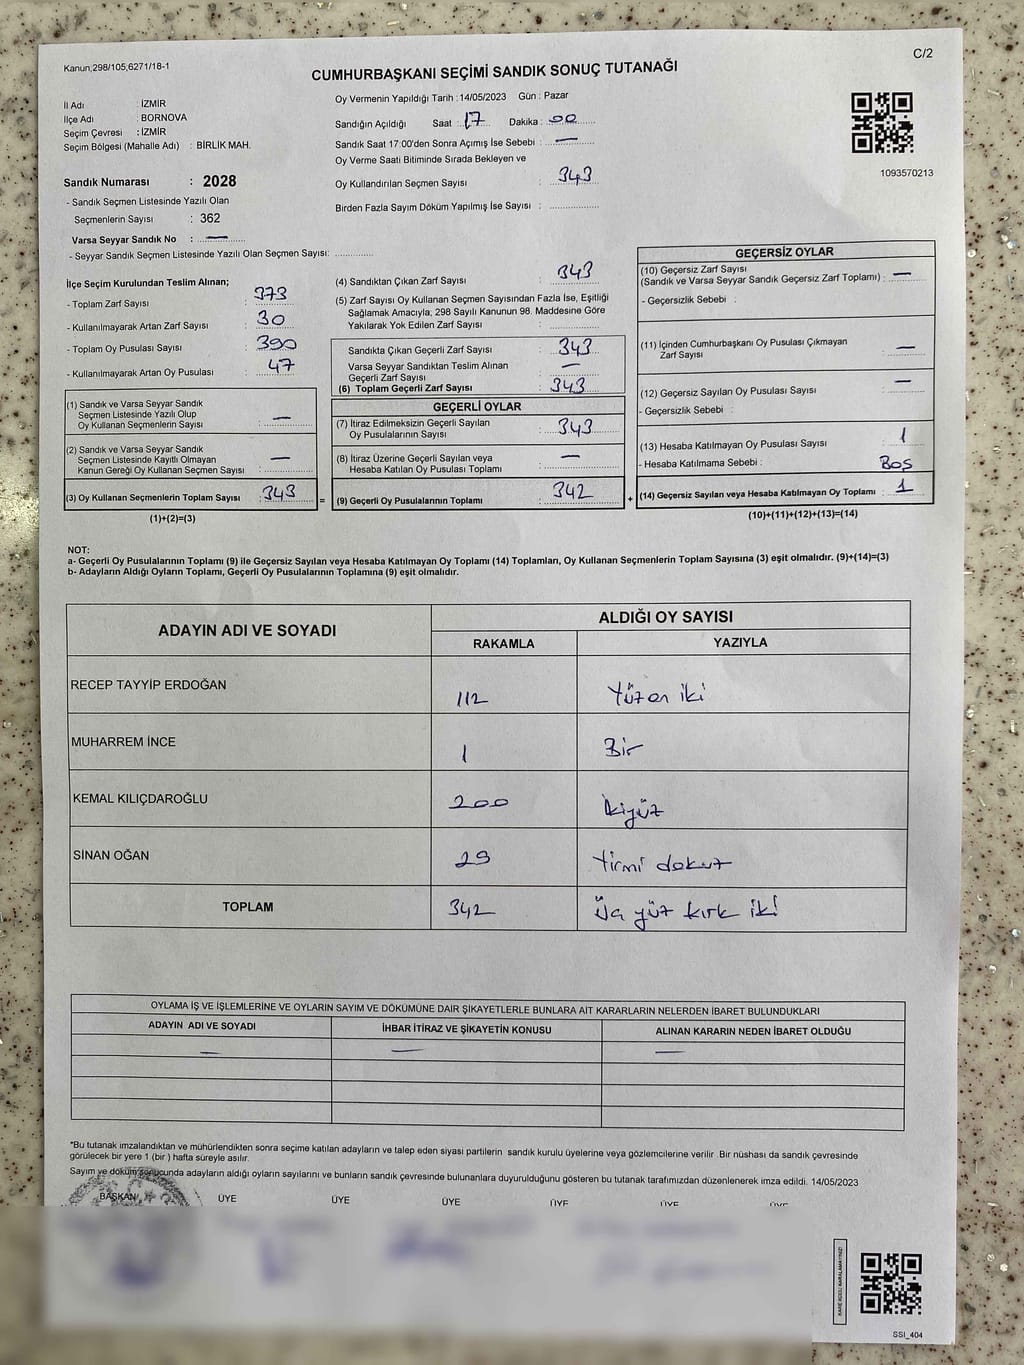 Kanun;298/105,6271/18-1
C/2
CUMHURBAŞKANI SEÇİMİ SANDIK SONUÇ TUTANAĞI
İl Adı : İZMİR
İlçe Adı : BORNOVA
Seçim Çevresi : İZMİR
Seçim Bölgesi (Mahalle Adı) : BİRLİK MAH.
Sandık Numarası : 2028
- Sandık Seçmen Listesinde Yazılı Olan
Seçmenlerin Sayısı : 362
Varsa Seyyar Sandık No : —
- Seyyar Sandık Seçmen Listesinde Yazılı Olan Seçmen Sayısı: ..............
Oy Vermenin Yapıldığı Tarih : 14/05/2023 Gün : Pazar
Sandığın Açıldığı Saat : 17 Dakika : 00
Sandık Saat 17:00'den Sonra Açımış İse Sebebi : —
Oy Verme Saati Bitiminde Sırada Bekleyen ve
Oy Kullandırılan Seçmen Sayısı : 343
Birden Fazla Sayım Döküm Yapılmış İse Sayısı : ..................
1093570213
İlçe Seçim Kurulundan Teslim Alınan;
- Toplam Zarf Sayısı : 373
- Kullanılmayarak Artan Zarf Sayısı : 30
- Toplam Oy Pusulası Sayısı : 390
- Kullanılmayarak Artan Oy Pusulası : 47
(1) Sandık ve Varsa Seyyar Sandık
Seçmen Listesinde Yazılı Olup
Oy Kullanan Seçmenlerin Sayısı : —
(2) Sandık ve Varsa Seyyar Sandık
Seçmen Listesinde Kayıtlı Olmayan
Kanun Gereği Oy Kullanan Seçmen Sayısı : —
(3) Oy Kullanan Seçmenlerin Toplam Sayısı : 343 =
(1)+(2)=(3)
(4) Sandıktan Çıkan Zarf Sayısı : 343
(5) Zarf Sayısı Oy Kullanan Seçmen Sayısından Fazla İse, Eşitliği
Sağlamak Amacıyla, 298 Sayılı Kanunun 98. Maddesine Göre
Yakılarak Yok Edilen Zarf Sayısı : ..................
Sandıkta Çıkan Geçerli Zarf Sayısı : 343
Varsa Seyyar Sandıktan Teslim Alınan
Geçerli Zarf Sayısı : —
(6) Toplam Geçerli Zarf Sayısı : 343
GEÇERLİ OYLAR
(7) İtiraz Edilmeksizin Geçerli Sayılan
Oy Pusulalarının Sayısı : 343
(8) İtiraz Üzerine Geçerli Sayılan veya
Hesaba Katılan Oy Pusulası Toplamı : —
(9) Geçerli Oy Pusulalarının Toplamı : 342 +
GEÇERSİZ OYLAR
(10) Geçersiz Zarf Sayısı
(Sandık ve Varsa Seyyar Sandık Geçersiz Zarf Toplamı) : —
- Geçersizlik Sebebi :
(11) İçinden Cumhurbaşkanı Oy Pusulası Çıkmayan
Zarf Sayısı : —
(12) Geçersiz Sayılan Oy Pusulası Sayısı : —
- Geçersizlik Sebebi :
(13) Hesaba Katılmayan Oy Pusulası Sayısı : 1
- Hesaba Katılmama Sebebi : BOS
(14) Geçersiz Sayılan veya Hesaba Katılmayan Oy Toplamı : 1
(10)+(11)+(12)+(13)=(14)
NOT:
a- Geçerli Oy Pusulalarının Toplamı (9) ile Geçersiz Sayılan veya Hesaba Katılmayan Oy Toplamı (14) Toplamları, Oy Kullanan Seçmenlerin Toplam Sayısına (3) eşit olmalıdır. (9)+(14)=(3)
b- Adayların Aldığı Oyların Toplamı, Geçerli Oy Pusulalarının Toplamına (9) eşit olmalıdır.
ADAYIN ADI VE SOYADI
ALDIĞI OY SAYISI
RAKAMLA YAZIYLA
RECEP TAYYİP ERDOĞAN 112 Yüzon iki
MUHARREM İNCE 1 Bir
KEMAL KILIÇDAROĞLU 200 İkiyüz
SİNAN OĞAN 29 Yirmi dokuz
TOPLAM 342 Üç yüz kırk iki
OYLAMA İŞ VE İŞLEMLERİNE VE OYLARIN SAYIM VE DÖKÜMÜNE DAİR ŞİKAYETLERLE BUNLARA AİT KARARLARIN NELERDEN İBARET BULUNDUKLARI
ADAYIN ADI VE SOYADI İHBAR İTİRAZ VE ŞİKAYETİN KONUSU ALINAN KARARIN NEDEN İBARET OLDUĞU
— — —
*Bu tutanak imzalandıktan ve mühürlendikten sonra seçime katılan adayların ve talep eden siyasi partilerin sandık kurulu üyelerine veya gözlemcilerine verilir .Bir nüshası da sandık çevresinde
görülecek bir yere 1 (bir ) hafta süreyle asılır.
Sayım ve döküm sonucunda adayların aldığı oyların sayılarını ve bunların sandık çevresinde bulunanlara duyurulduğunu gösteren bu tutanak tarafımızdan düzenlenerek imza edildi. 14/05/2023
BAŞKAN ÜYE ÜYE ÜYE ÜYE ÜYE ÜYE
KARE KODU KARALAMAYINIZ!
SSI_404